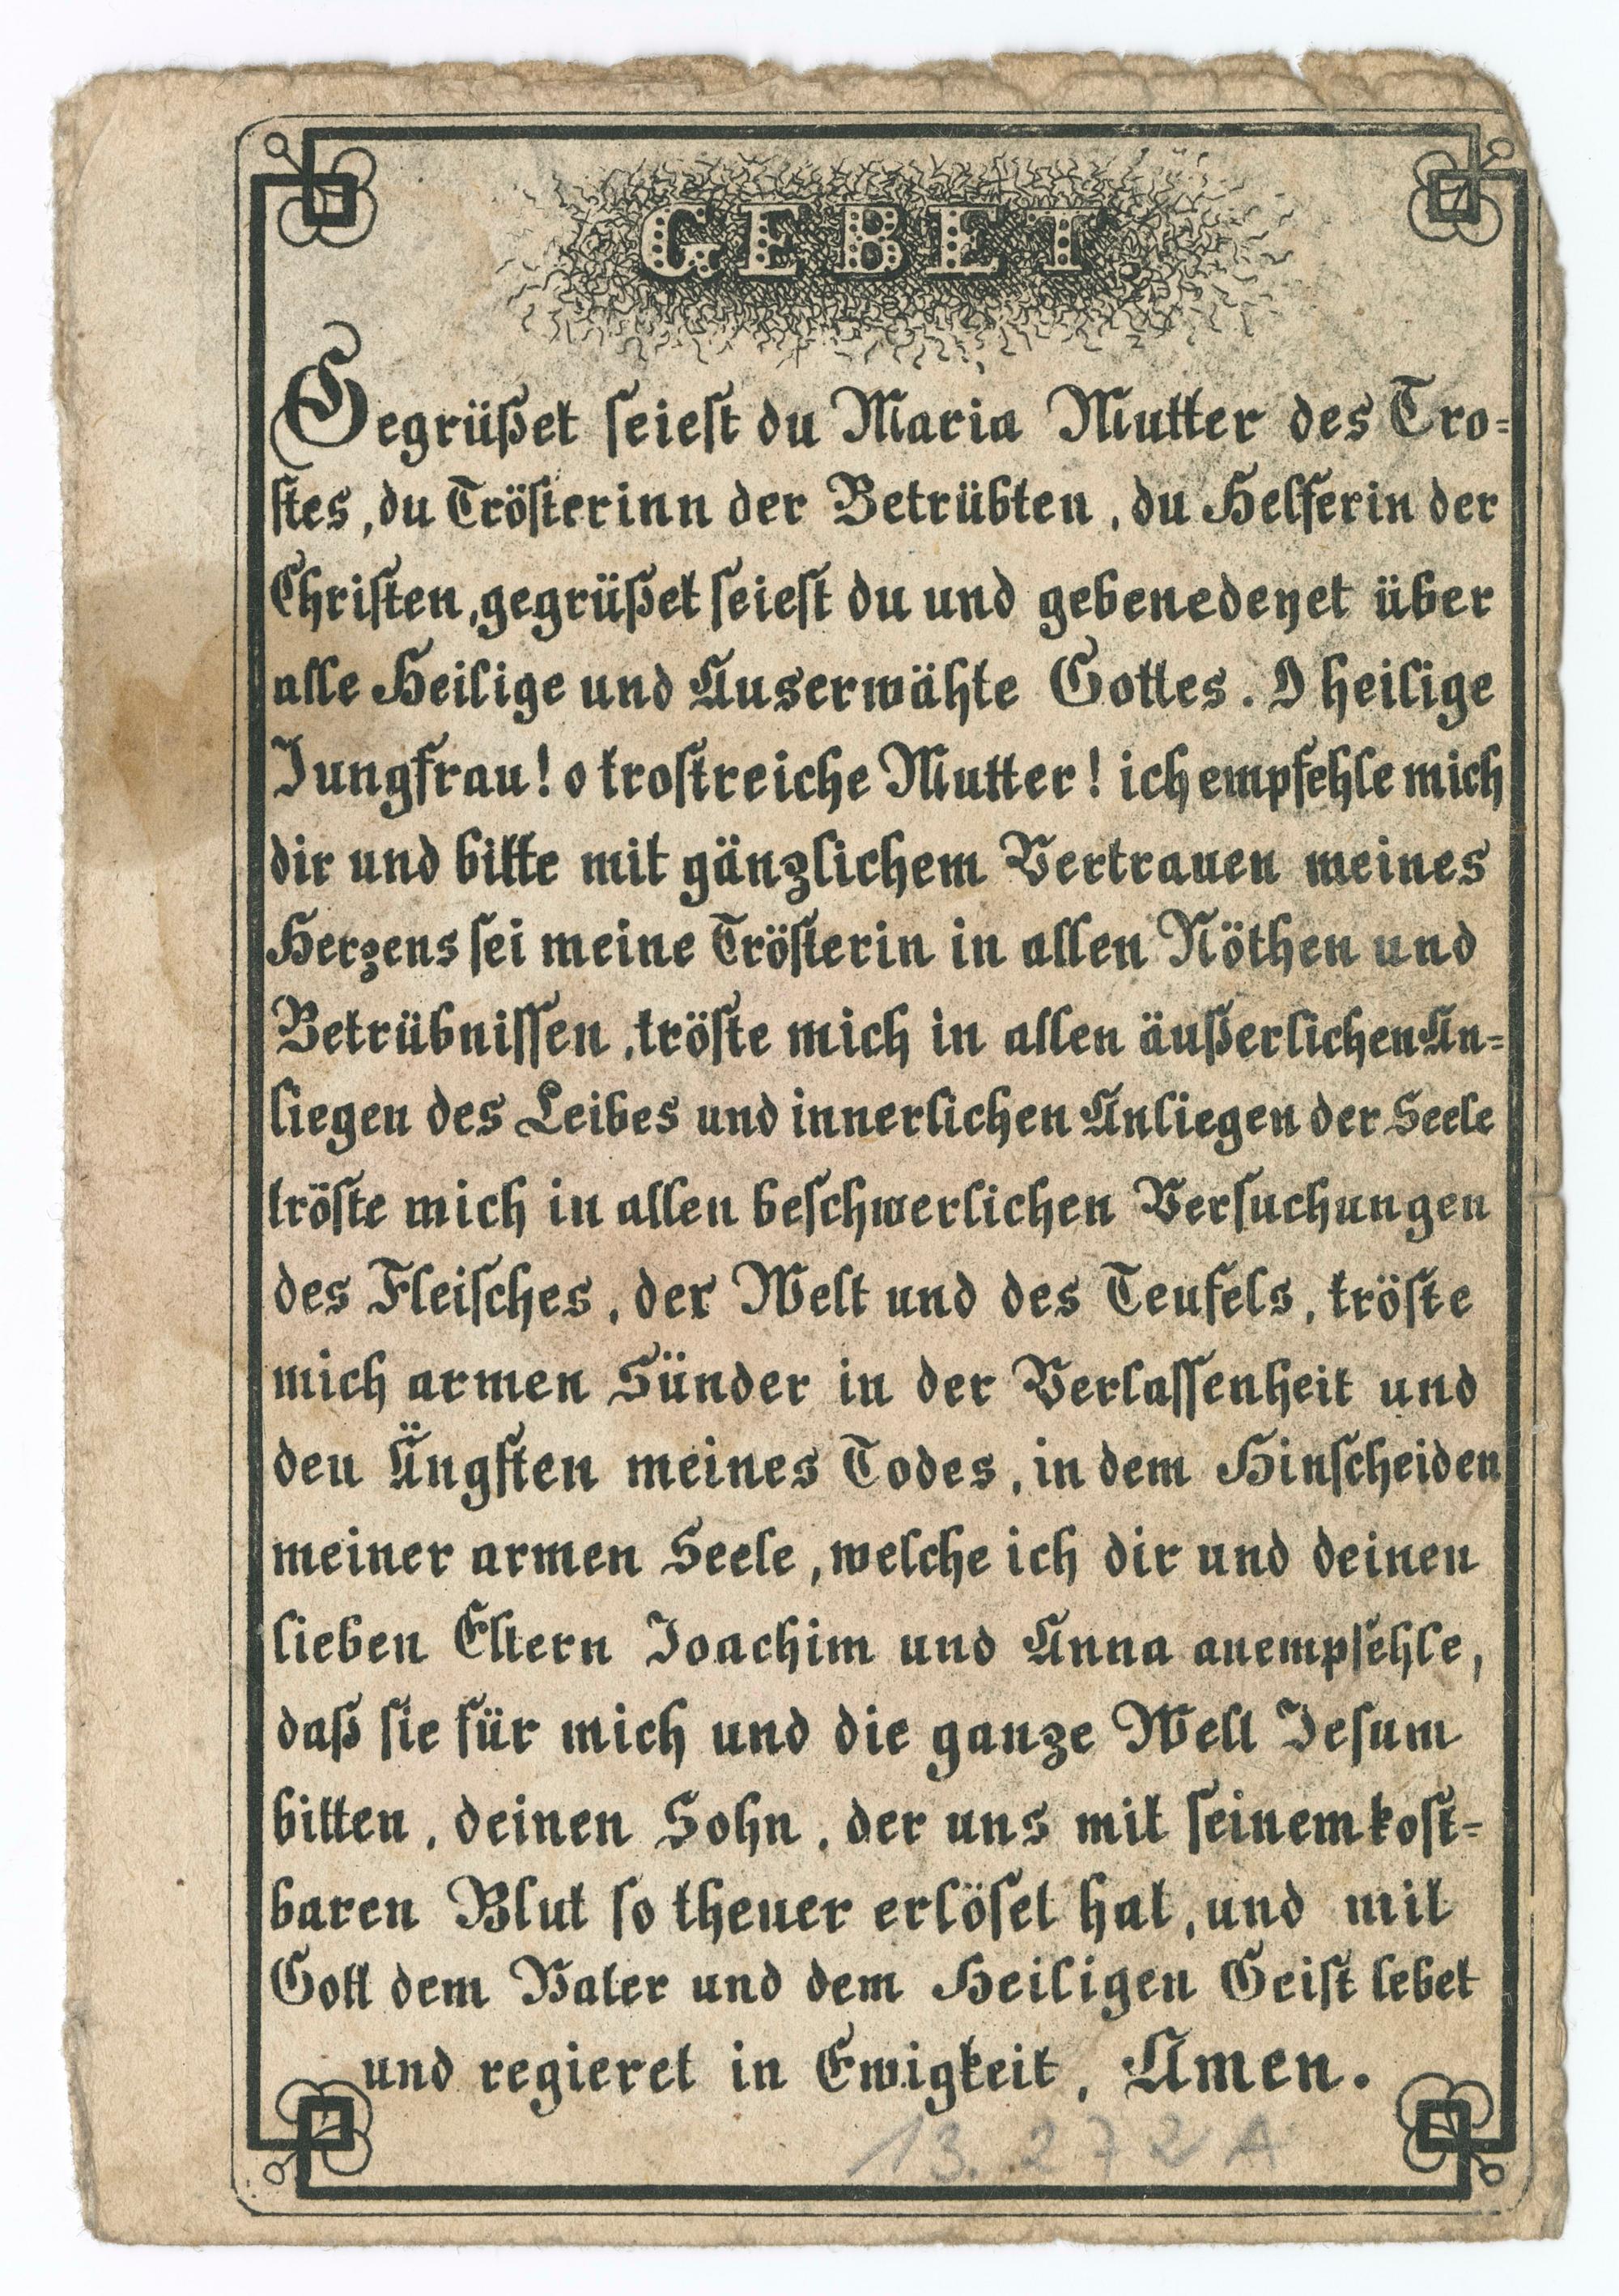 GEBET.
Gegrüßet seiest du Maria Mutter des Tro=
stes, du Trösterinn der Betrübten, du Helferin der
Christen, gegrüßet seiest du und gebenedeyet über
alle Heilige und Auserwähte Gottes. O heilige
Jungfrau! o trostreiche Mutter! ich empfehle mich
dir und bitte mit gänzlichem Vertrauen meines
Herzens sei meine Trösterin in allen Nöthen und
Betrübnissen, tröste mich in allen äußerlichen An=
liegen des Leibes und innerlichen Anliegen der Seele
tröste mich in allen beschwerlichen Versuchungen
des Fleisches, der Welt und des Teufels, tröste
mich armen Sünder in der Verlassenheit und
den Ängsten meines Todes, in dem Hinscheiden
meiner armen Seele, welche ich dir und deinen
lieben Eltern Joachim und Anna anempfehle,
daß sie für mich und die ganze Welt Jesum
bitten, deinen Sohn, der uns mit seinem kost=
baren Blut so theuer erlöset hat, und mit
Gott dem Vater und dem Heiligen Geist lebet
und regieret in Ewigkeit, Amen.
13.272 A